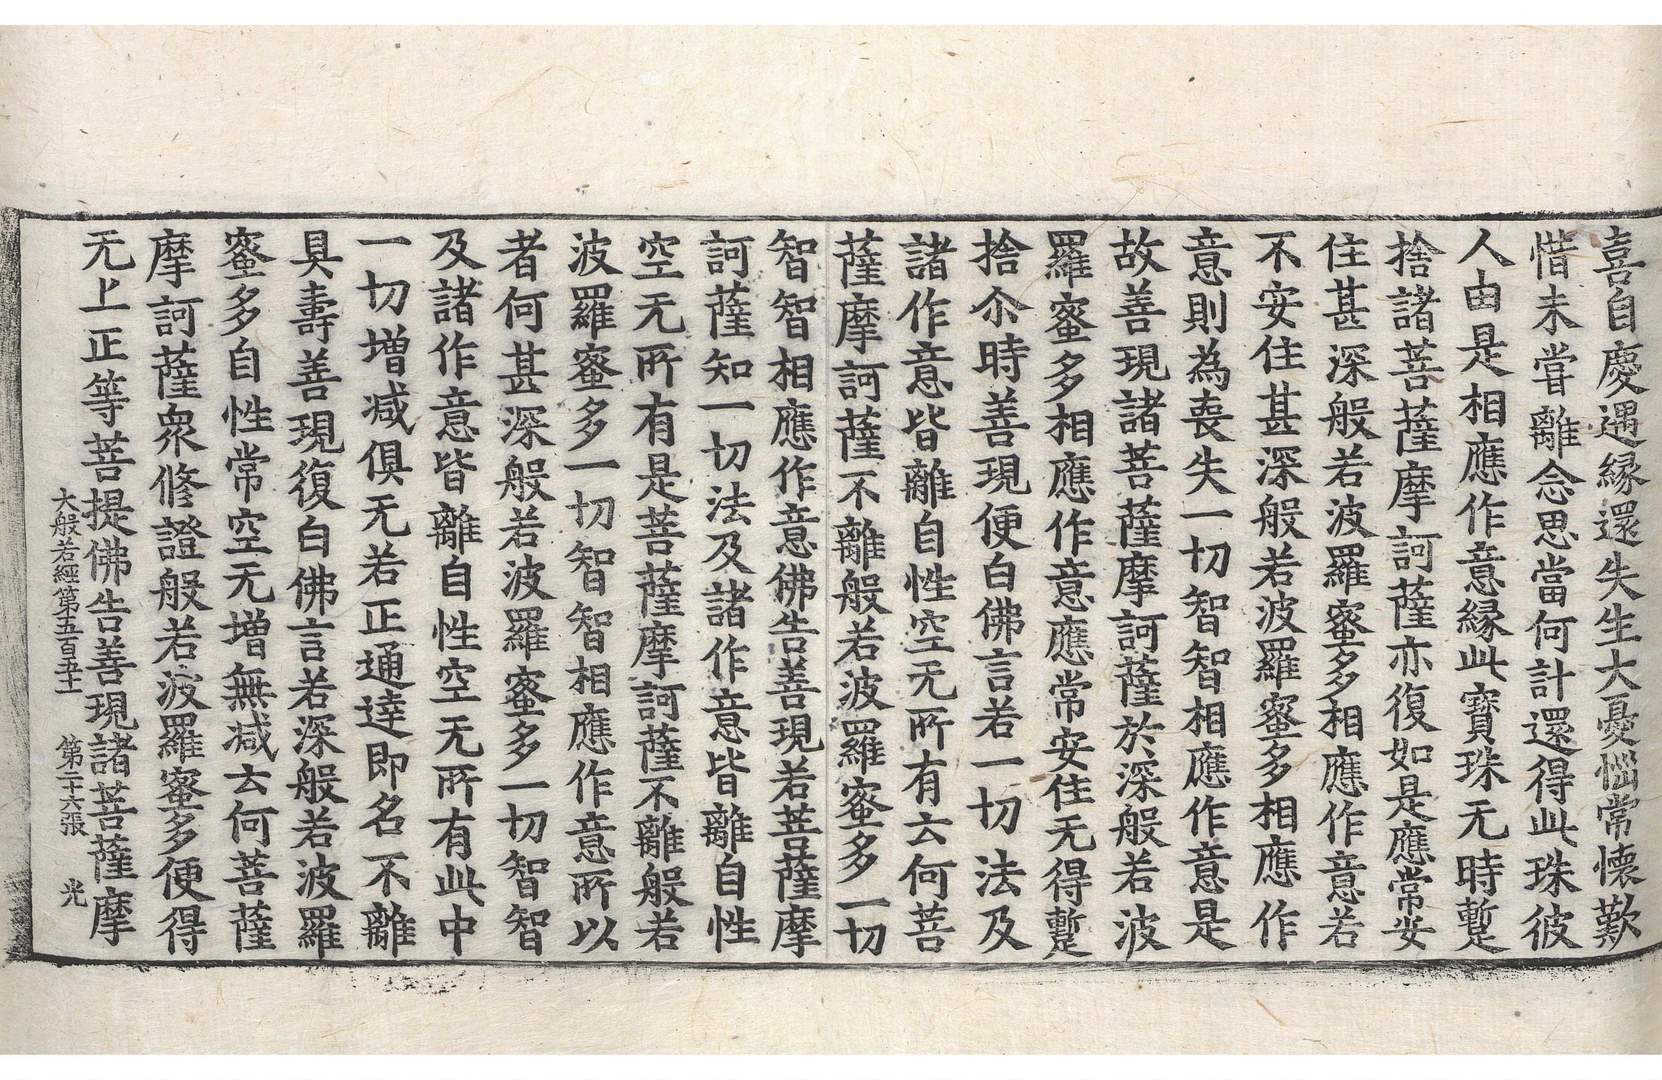 喜自慶遇緣還失生大憂惱常懷歎
惜未嘗離念思當何計還得此珠彼
人由是相應作意緣此寶珠无時蹔
捨諸菩薩摩訶薩亦復如是應常安
住甚深般若波羅蜜多相應作意若
不安住甚深般若波羅蜜多相應作
意則為喪失一切智智相應作意是
故善現諸菩薩摩訶薩於深般若波
羅蜜多相應作意應常安住无得蹔
捨尒時善現便白佛言若一切法及
諸作意皆離自性空无所有云何菩
薩摩訶薩不離般若波羅蜜多一切
智智相應作意佛告善現若菩薩摩
訶薩知一切法及諸作意皆離自性
空无所有是菩薩摩訶薩不離般若
波羅蜜多一切智智相應作意所以
者何甚深般若波羅蜜多一切智智
及諸作意皆離自性空无所有此中
一切增减俱无若正通達即名不離
具壽善現復白佛言若深般若波羅
蜜多自性常空无增無减云何菩薩
摩訶薩衆修證般若波羅蜜多便得
无上正等菩提佛告善現諸菩薩摩
大般若經第五百五十一 第二十六張 光